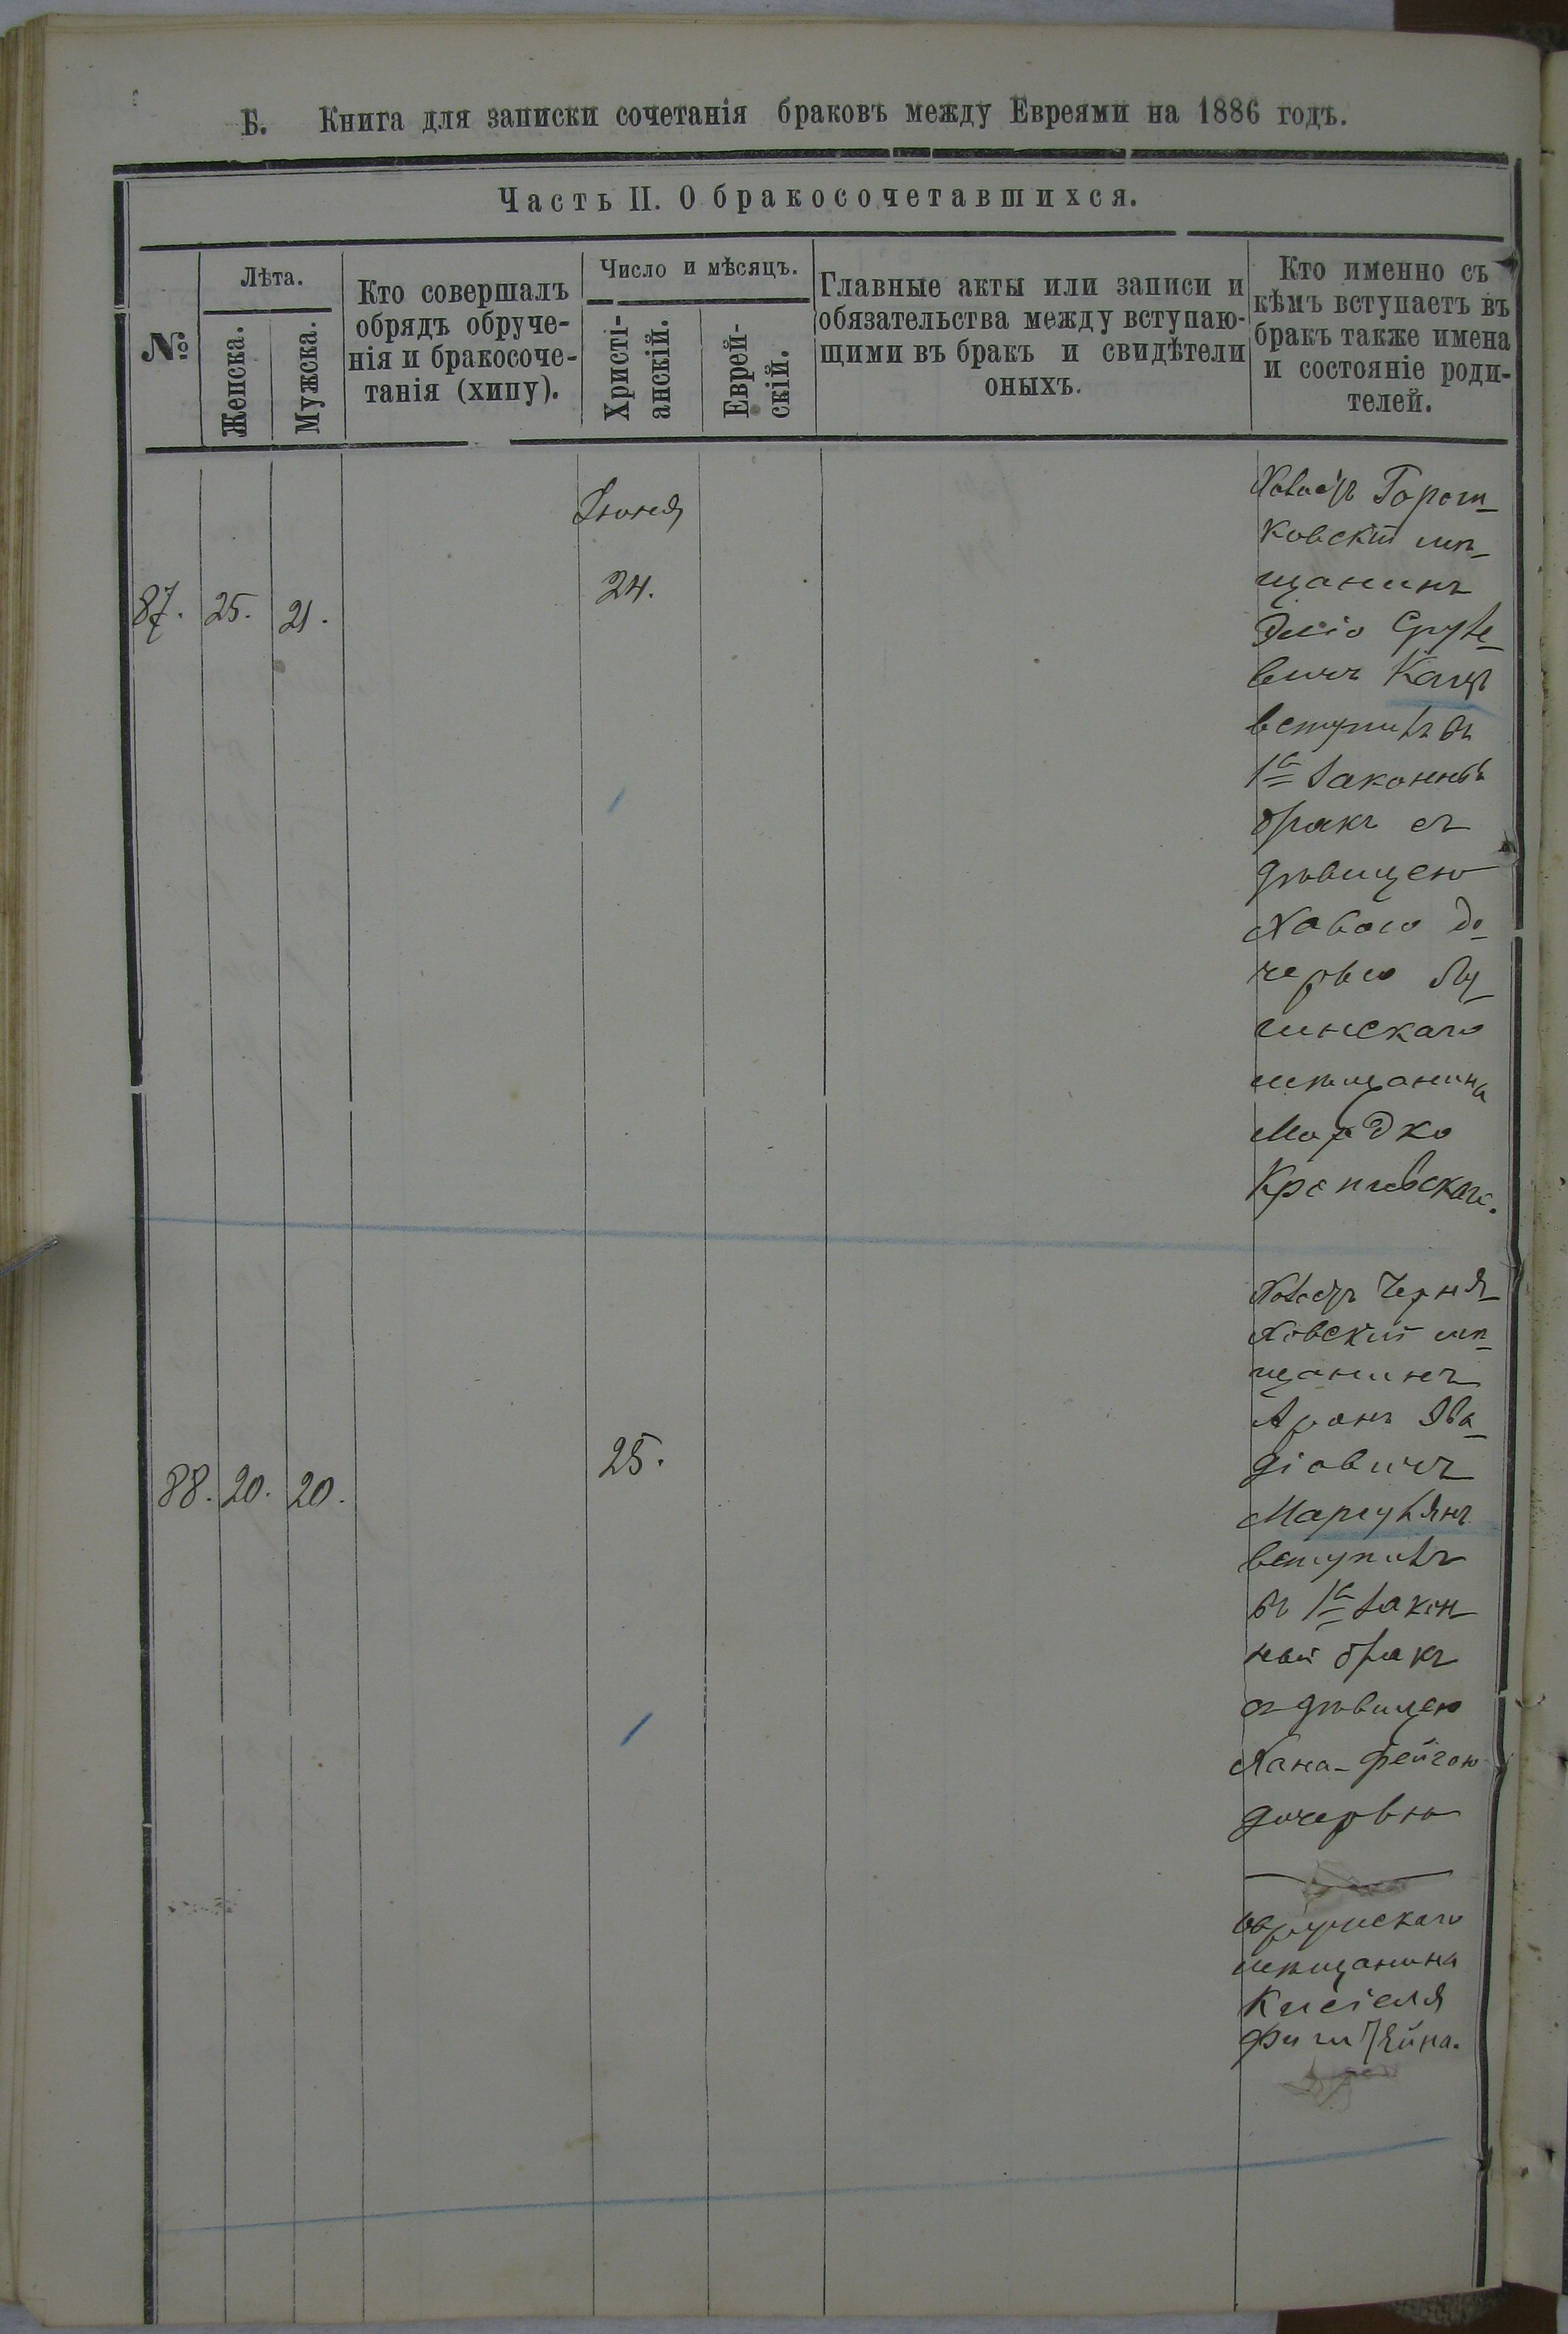 Б. Книга для записки сочетанія браковъ между Евреями на 1886 годъ.
Часть II. О бракосочетавшихся.
№
Лѣта.
Женска.
Мужска.
Кто совершалъ
обрядъ обруче-
нія и бракосоче-
танія (хипу).
Число и мѣсяцъ.
Христі-
анскій.
Еврей-
скій.
Главные акты или записи и
обязательства между вступаю-
щими въ бракъ и свидѣтели
оныхъ.
Кто именно съ
кѣмъ вступаетъ въ
бракъ также имена
и состояніе роди-
телей.
Іюня
87. 25. 21.
24.
Горош-
ковскій мѣ-
щанинъ
вичъ Кацъ
вступилъ въ
1й законный
бракъ съ
дѣвицею
Хавою до-
черью
гинскаго
мѣщанина
Мордко
88. 20. 20.
25.
Черня-
ховскій мѣ-
щанинъ
Аронъ
діовичъ
Маргулянъ
вступилъ
въ 1й закон
ный бракъ
съ дѣвицею
Хана-Фейгою
дочерью
Овручскаго
мѣщанина
Кисіеля